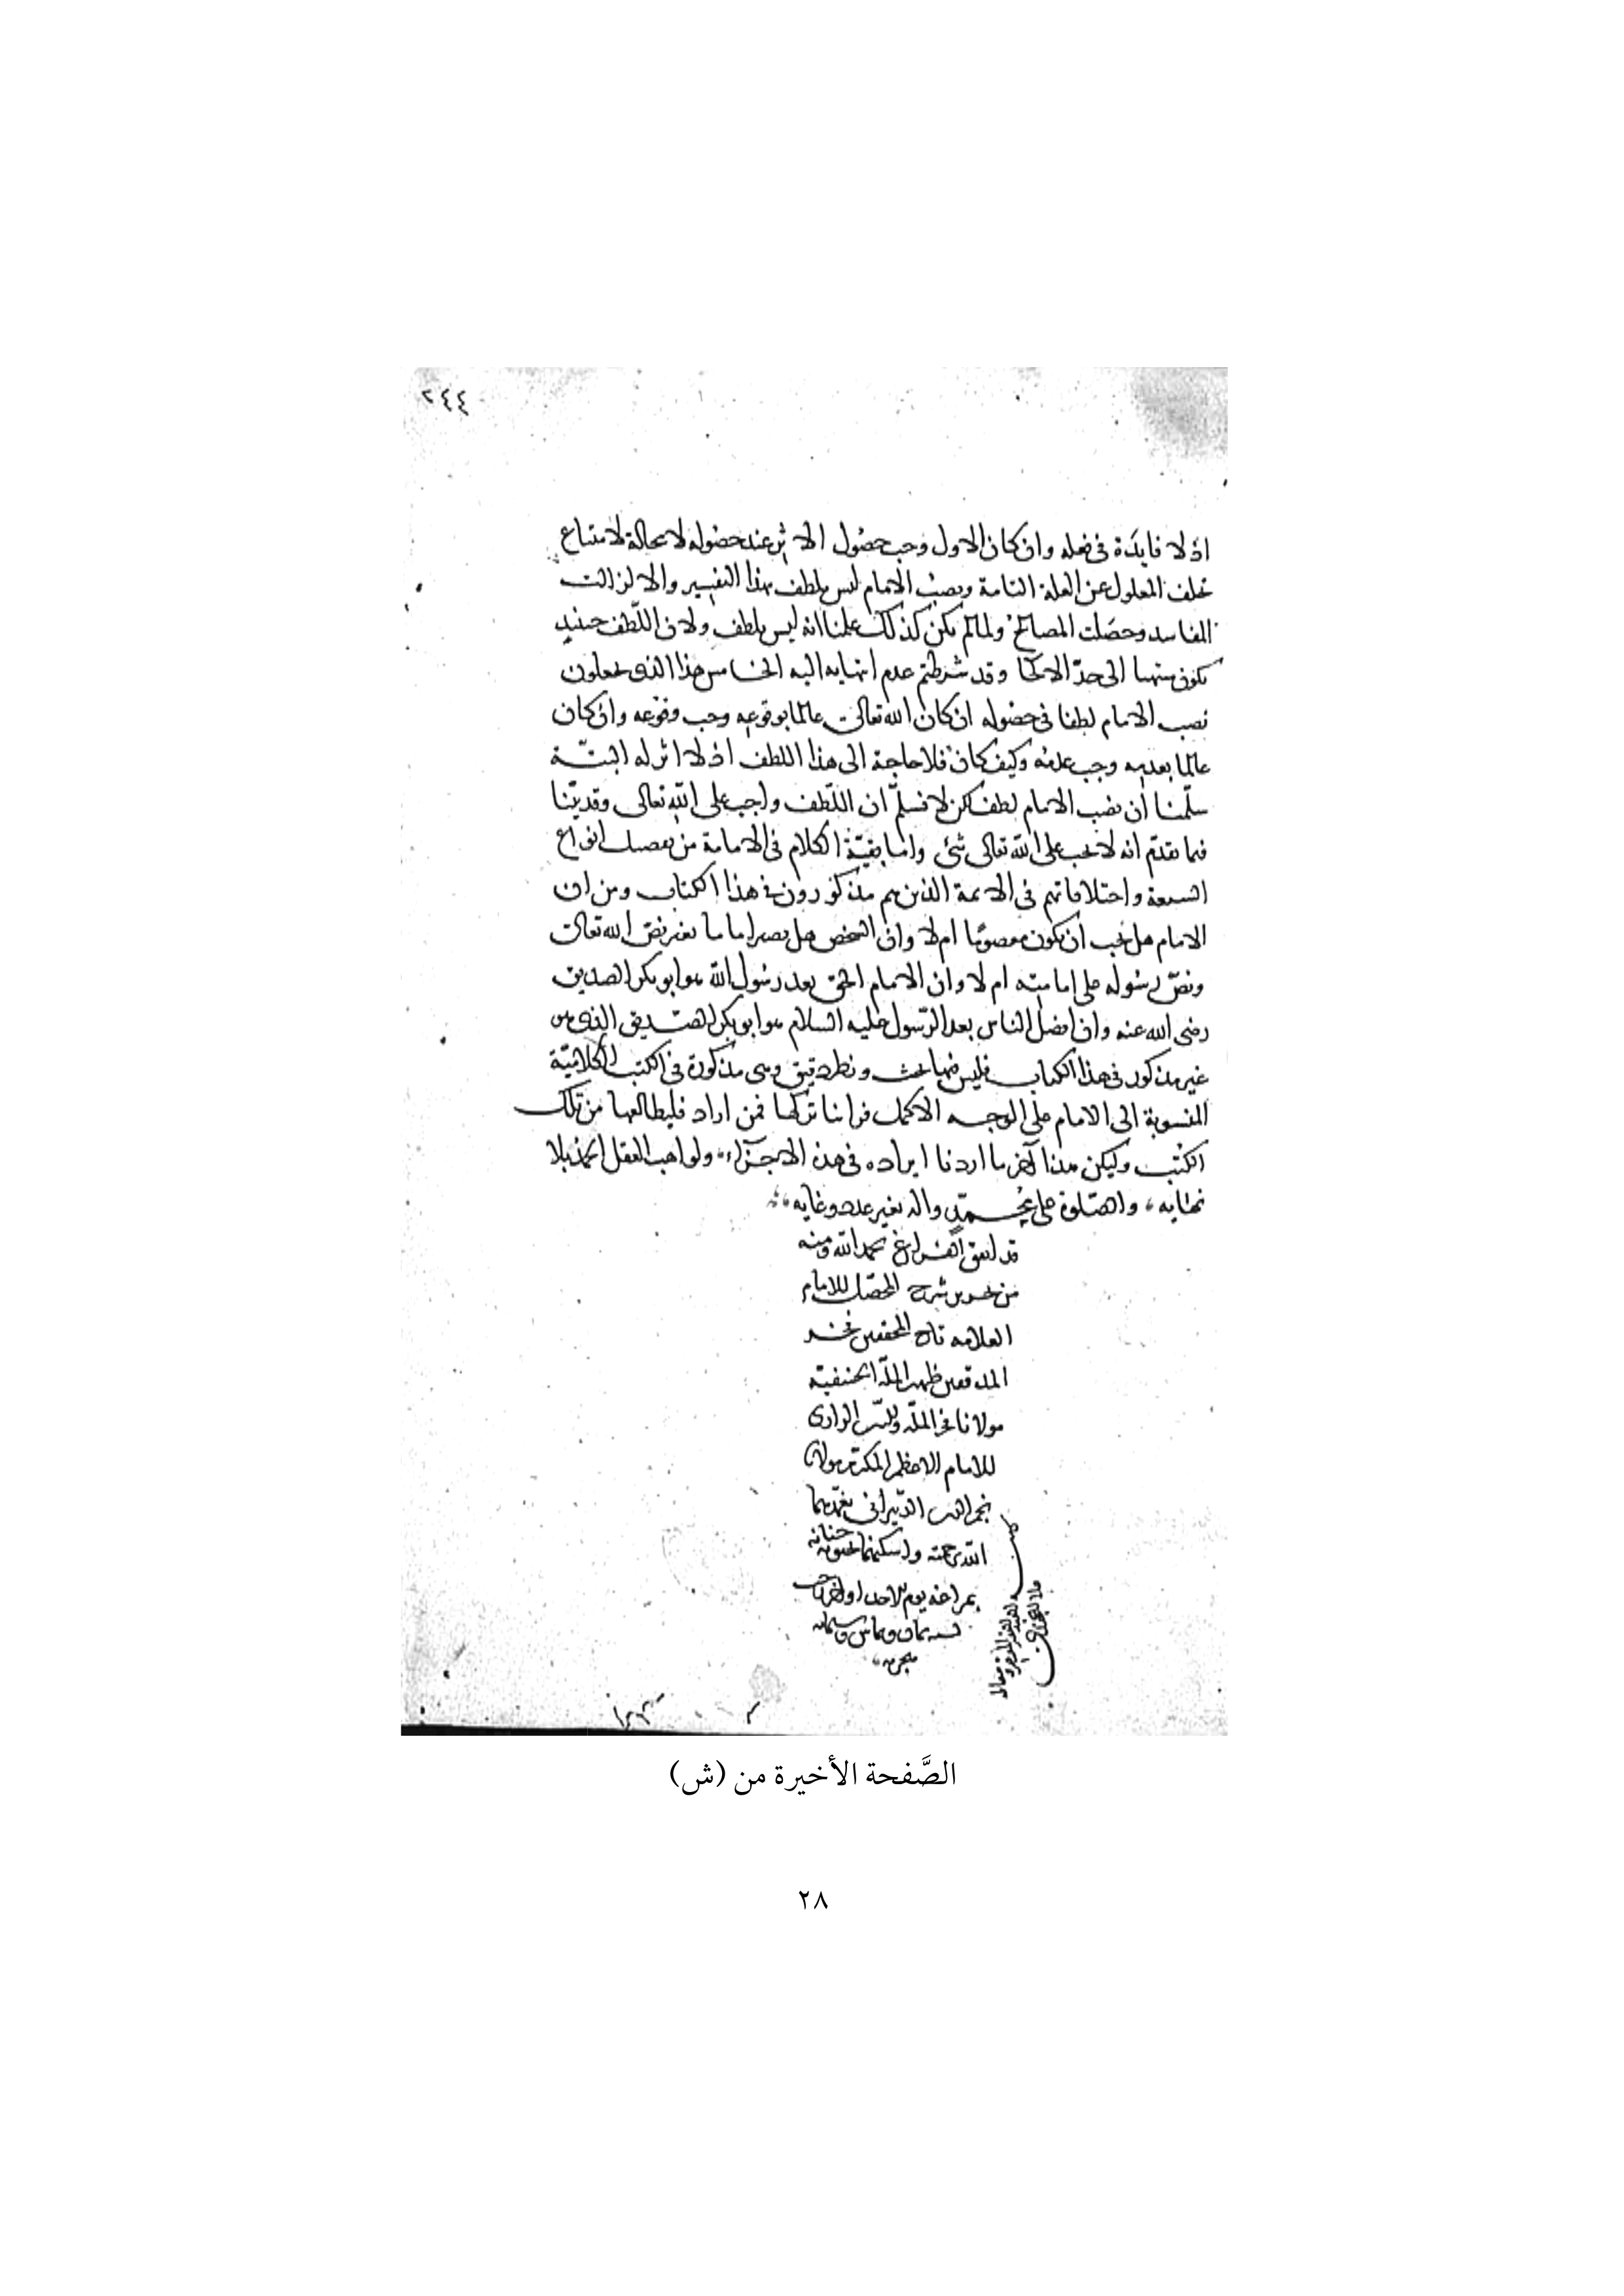 ٢٤٤
اذ لا فايدة في فعله وان كان الاول وجب حصول الاثر عند حضوله لا محالة لامتناع
تخلف المعلول عن العلة التامة ونصب الامام ليس بلطف بهذا التفسير والا لزالت
المفاسد وحصلت المصالح ولما لم يكن كذلك علمنا انه ليس بلطف ولان اللطف حينيذ
يكون منتهيا الى حدّ الالجا وقد شرطتم عدم انتهايه اليه الخامس هذا الذي تجعلون
نصب الامام لطفا في حضوله ان كان الله تعالى عالما بوقوعه وجب وقوعه وان كان
عالما بعدمه وجب عدمه وكيف كان فلا حاجة الى هذا اللطف اذ لا اثر له البتّة
سلّمنا ان نصب الامام لطف لكن لا نسلّم ان اللّطف واجب على الله تعالى وقد بيّنا
فيما تقدّم انه لا يجب على الله تعالى شئ واما بقيّة الكلام في الامامة من تفصيل انواع
الشيعة واختلافاتهم في الايمة الذين هم مذكورون في هذا الكتاب ومن ان
الامام هل يجب ان يكون معصومًا ام لا وان الشخص هل يصير اماما بغير نصّ الله تعالى
ونصّ رسوله على امامته ام لا وان الامام الحق بعد رسول الله هو ابو بكر الصديق
رضي الله عنه وان افضل الناس بعد الرّسول عليه السلام هو ابو بكر الصّديق الذي هو
غير مذكور في هذا الكتاب فليس فيها بحث ونظر دقيق وهي مذكورة في الكتب الكلاميّة
المنسوبة الى الامام على الوجه الاكمل فراينا تركها فمن اراد فليطالعها من تلك
الكتب وليكن هذا آخر ما اردنا ايراده في هذه الاجزاء ولواهب العقل الحمد بلا
نهايه والصّلوة على محمّد واله بغير عدد وغايه
قد اتفق الفراغ بحمد الله ومنه
من تحرير شرح المحصّل للامام
العلامه تاج المحققين فخر
المدققين ظهير الملّة الحنفيّة
مولانا فخر الملّه والدّين الرازي
للامام الاعظم المكرّم مولانا
نجم الدين الدّبيراني تغمّدهما
الله برحمته واسكنهما جنانه
بمراغه يوم الاحد اواخر رجب
سنه ثمان وستمائه
هجريه
الصَّفحة الأخيرة من (ش)
٢٨